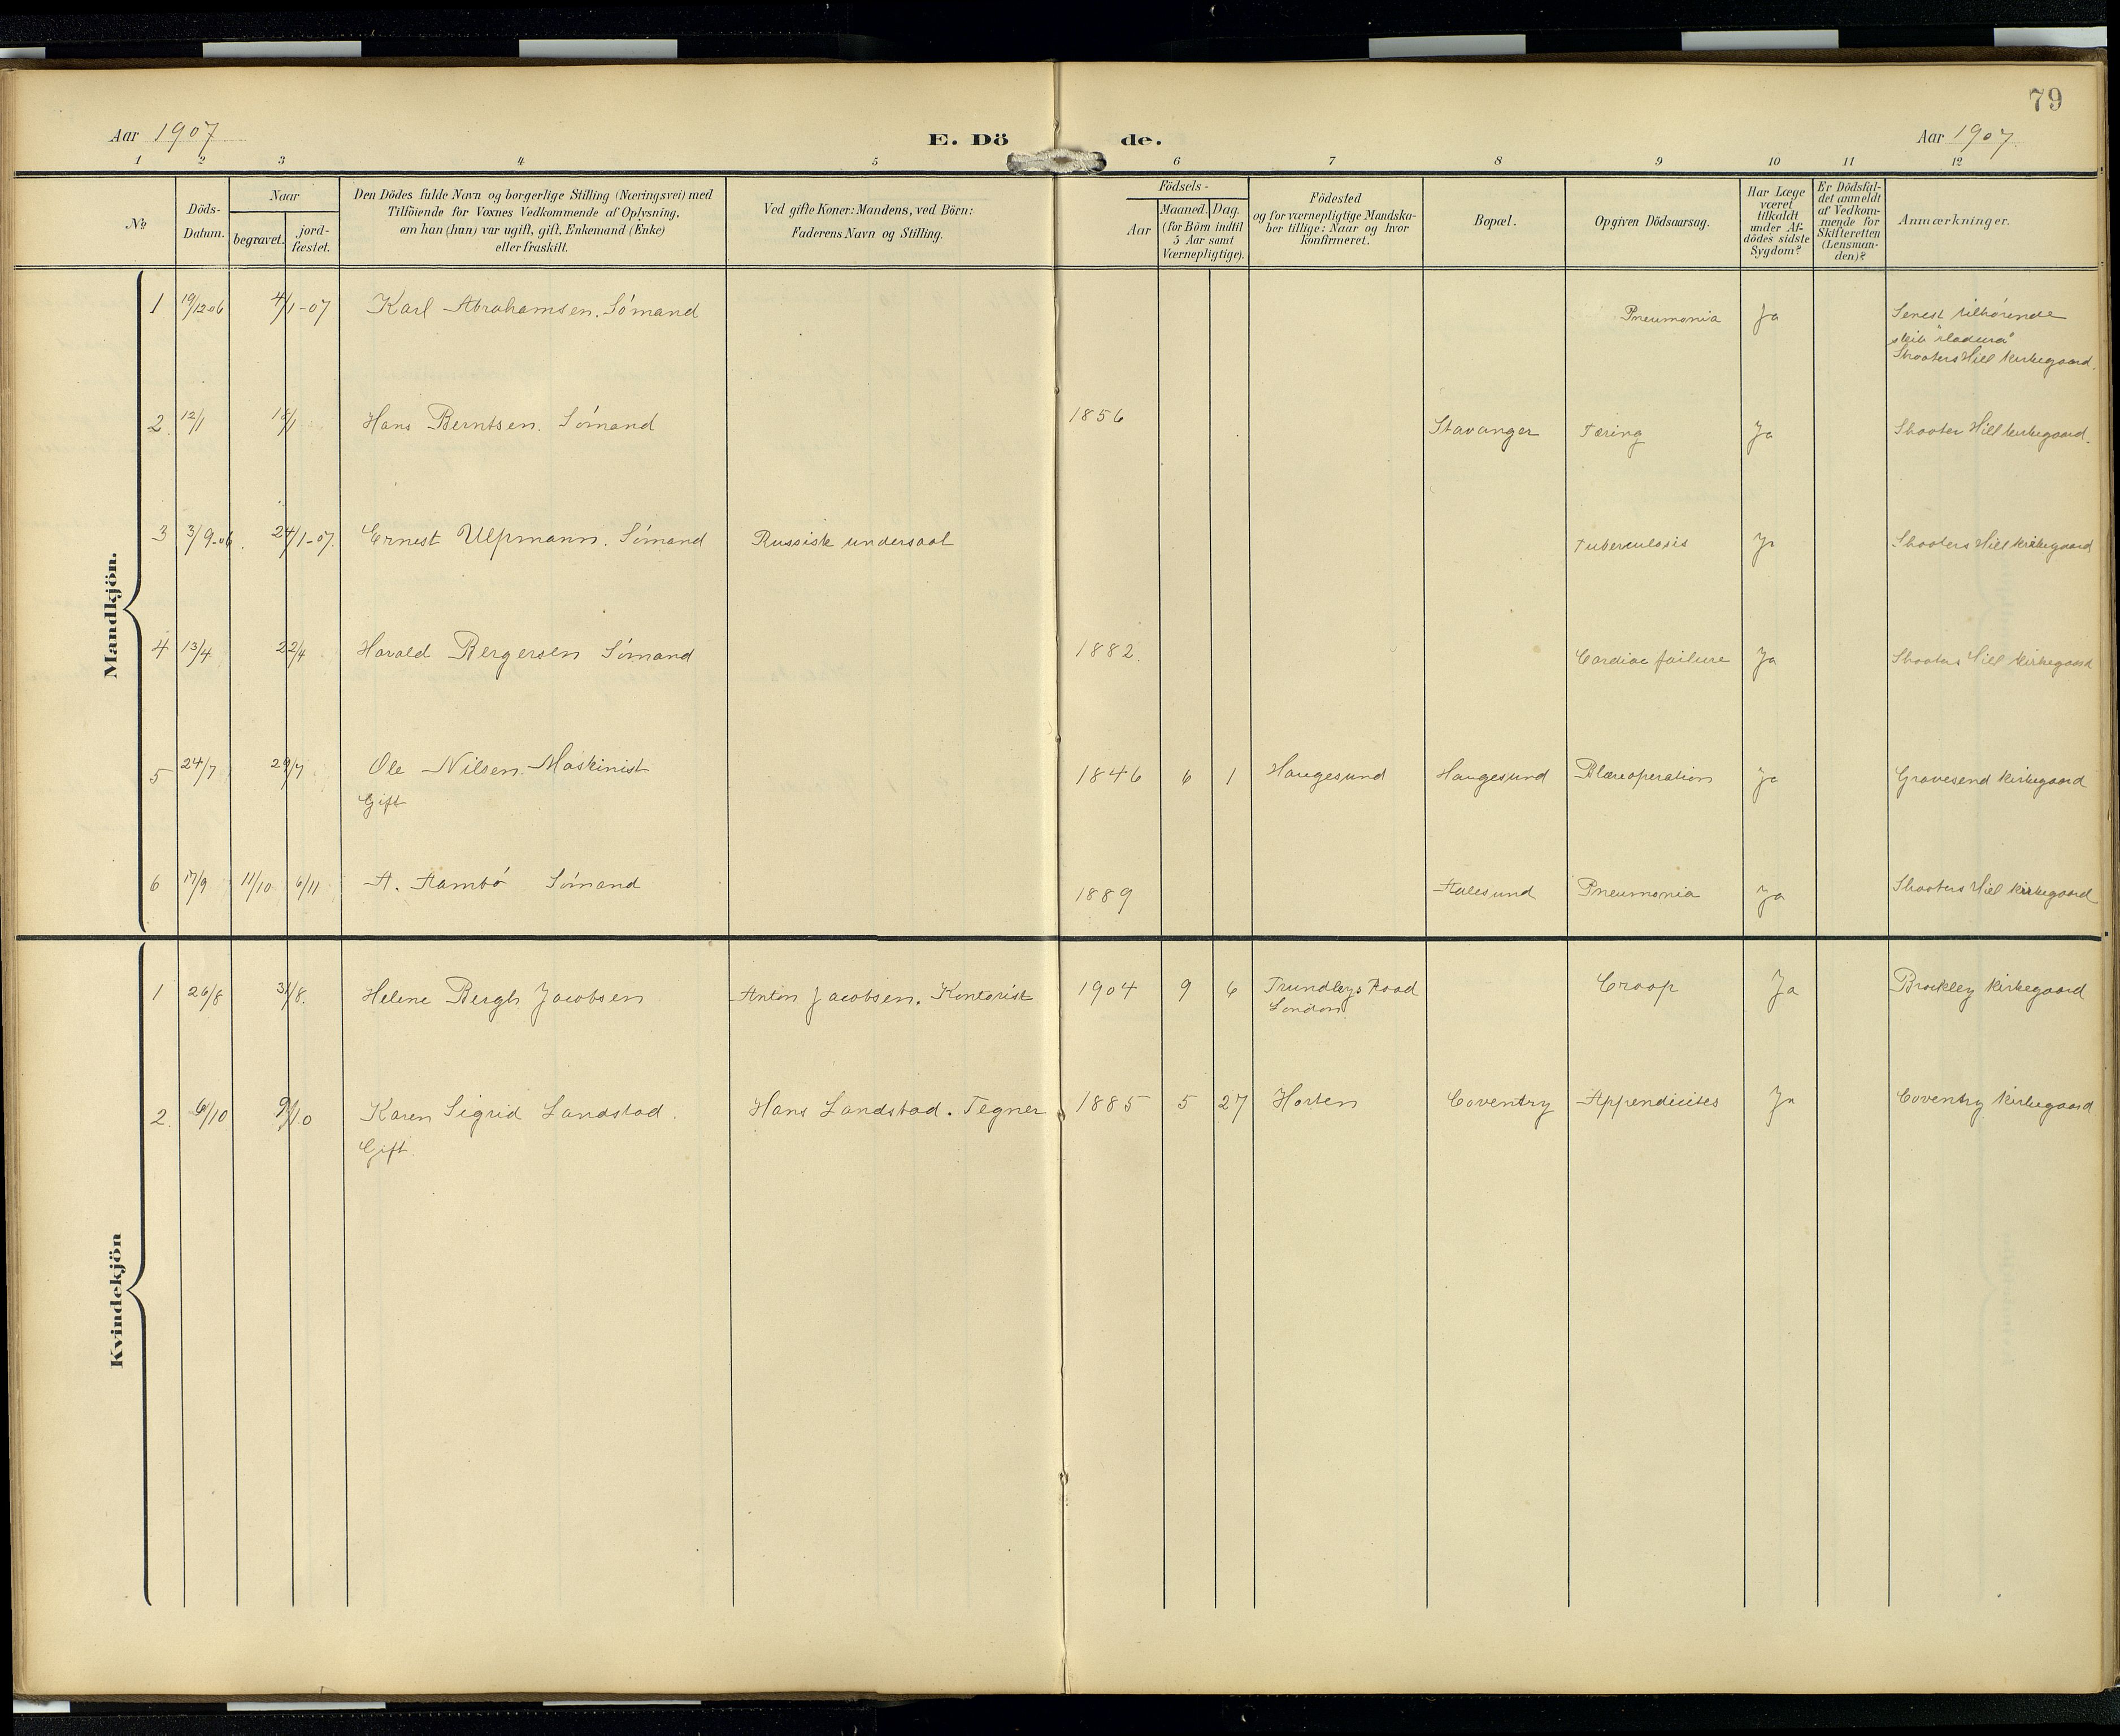 79
Aar 1907
E. Dö de.
Aar 1907.
1 2 3 4 5 6 7 8 9 10 11 12
No
Döds-
Datum.
Naar
begravet.
jord-
fæstet.
Den Dödes fulde Navn og borgerlige Stilling (Næringsvei) med
Tilföiende for Voxnes Vedkommende af Oplysning,
om han (hun) var ugift, gift, Enkemand (Enke)
eller fraskilt.
Ved gifte Koner: Mandens, ved Börn:
Faderens Navn og Stilling.
Födsels-
Aar
Maaned. Dag.
(for Börn indtil
5 Aar samt
Værnepligtige).
Födested
og for værnepligtige Mandska-
ber tillige: Naar og hvor
konfirmeret.
Bopæl.
Opgiven Dödsaarsag.
Har Læge
været
tilkaldt
under Af-
dödes sidste
Sygdom?
Er Dödsfal-
det anmeldt
af Vedkom-
mende for
Skifteretten
(Lensman-
den)?
Anmærkninger.
Mandkjön.
1 19/12-06 4/1-07 Karl Abrahamsen. Sómand Pneumonia Ja Senest tilhórende
skib
Shooters Hill kirkegaard.
2. 12/1 18/1 Hans Berntsen. Sómand 1856 Stavanger Tæring Ja Shooter Hill kirkegaard.
3 3/9-06. 24/1-07. Ernest Ulpmann. Sómand Russisk undersaat Tuberculosis Ja Shooters Hill kirkegaard
4 13/4 22/4 Harald Bergersen Sómand 1882. Cardiac failure Ja Shooters Hill kirkegaard
5 24/7 29/7 Ole Nilsen. Maskinist 1846 6 1 Haugesund Haugesund Blæreoperation Ja Gravesend kirkegaard
Gift
6 17/9 11/10 6/11 A. Aambó Sómand 1889 Aalesund Pneumonia Ja Shooters Hill kirkegaard
Kvindekjön
1 26/8 31/8. Helene Bergh Jacobsen Anton Jacobsen. Kontorist 1904 9 6 Trundleys Road Croop Ja Brockley kirkegaard
London
2. 6/10 9/10 Karen Sigrid Landstad. Hans Landstad. Tegner 1885 5 27 Horten Coventry Appendicites Ja Coventry kirkegaard
Gift.